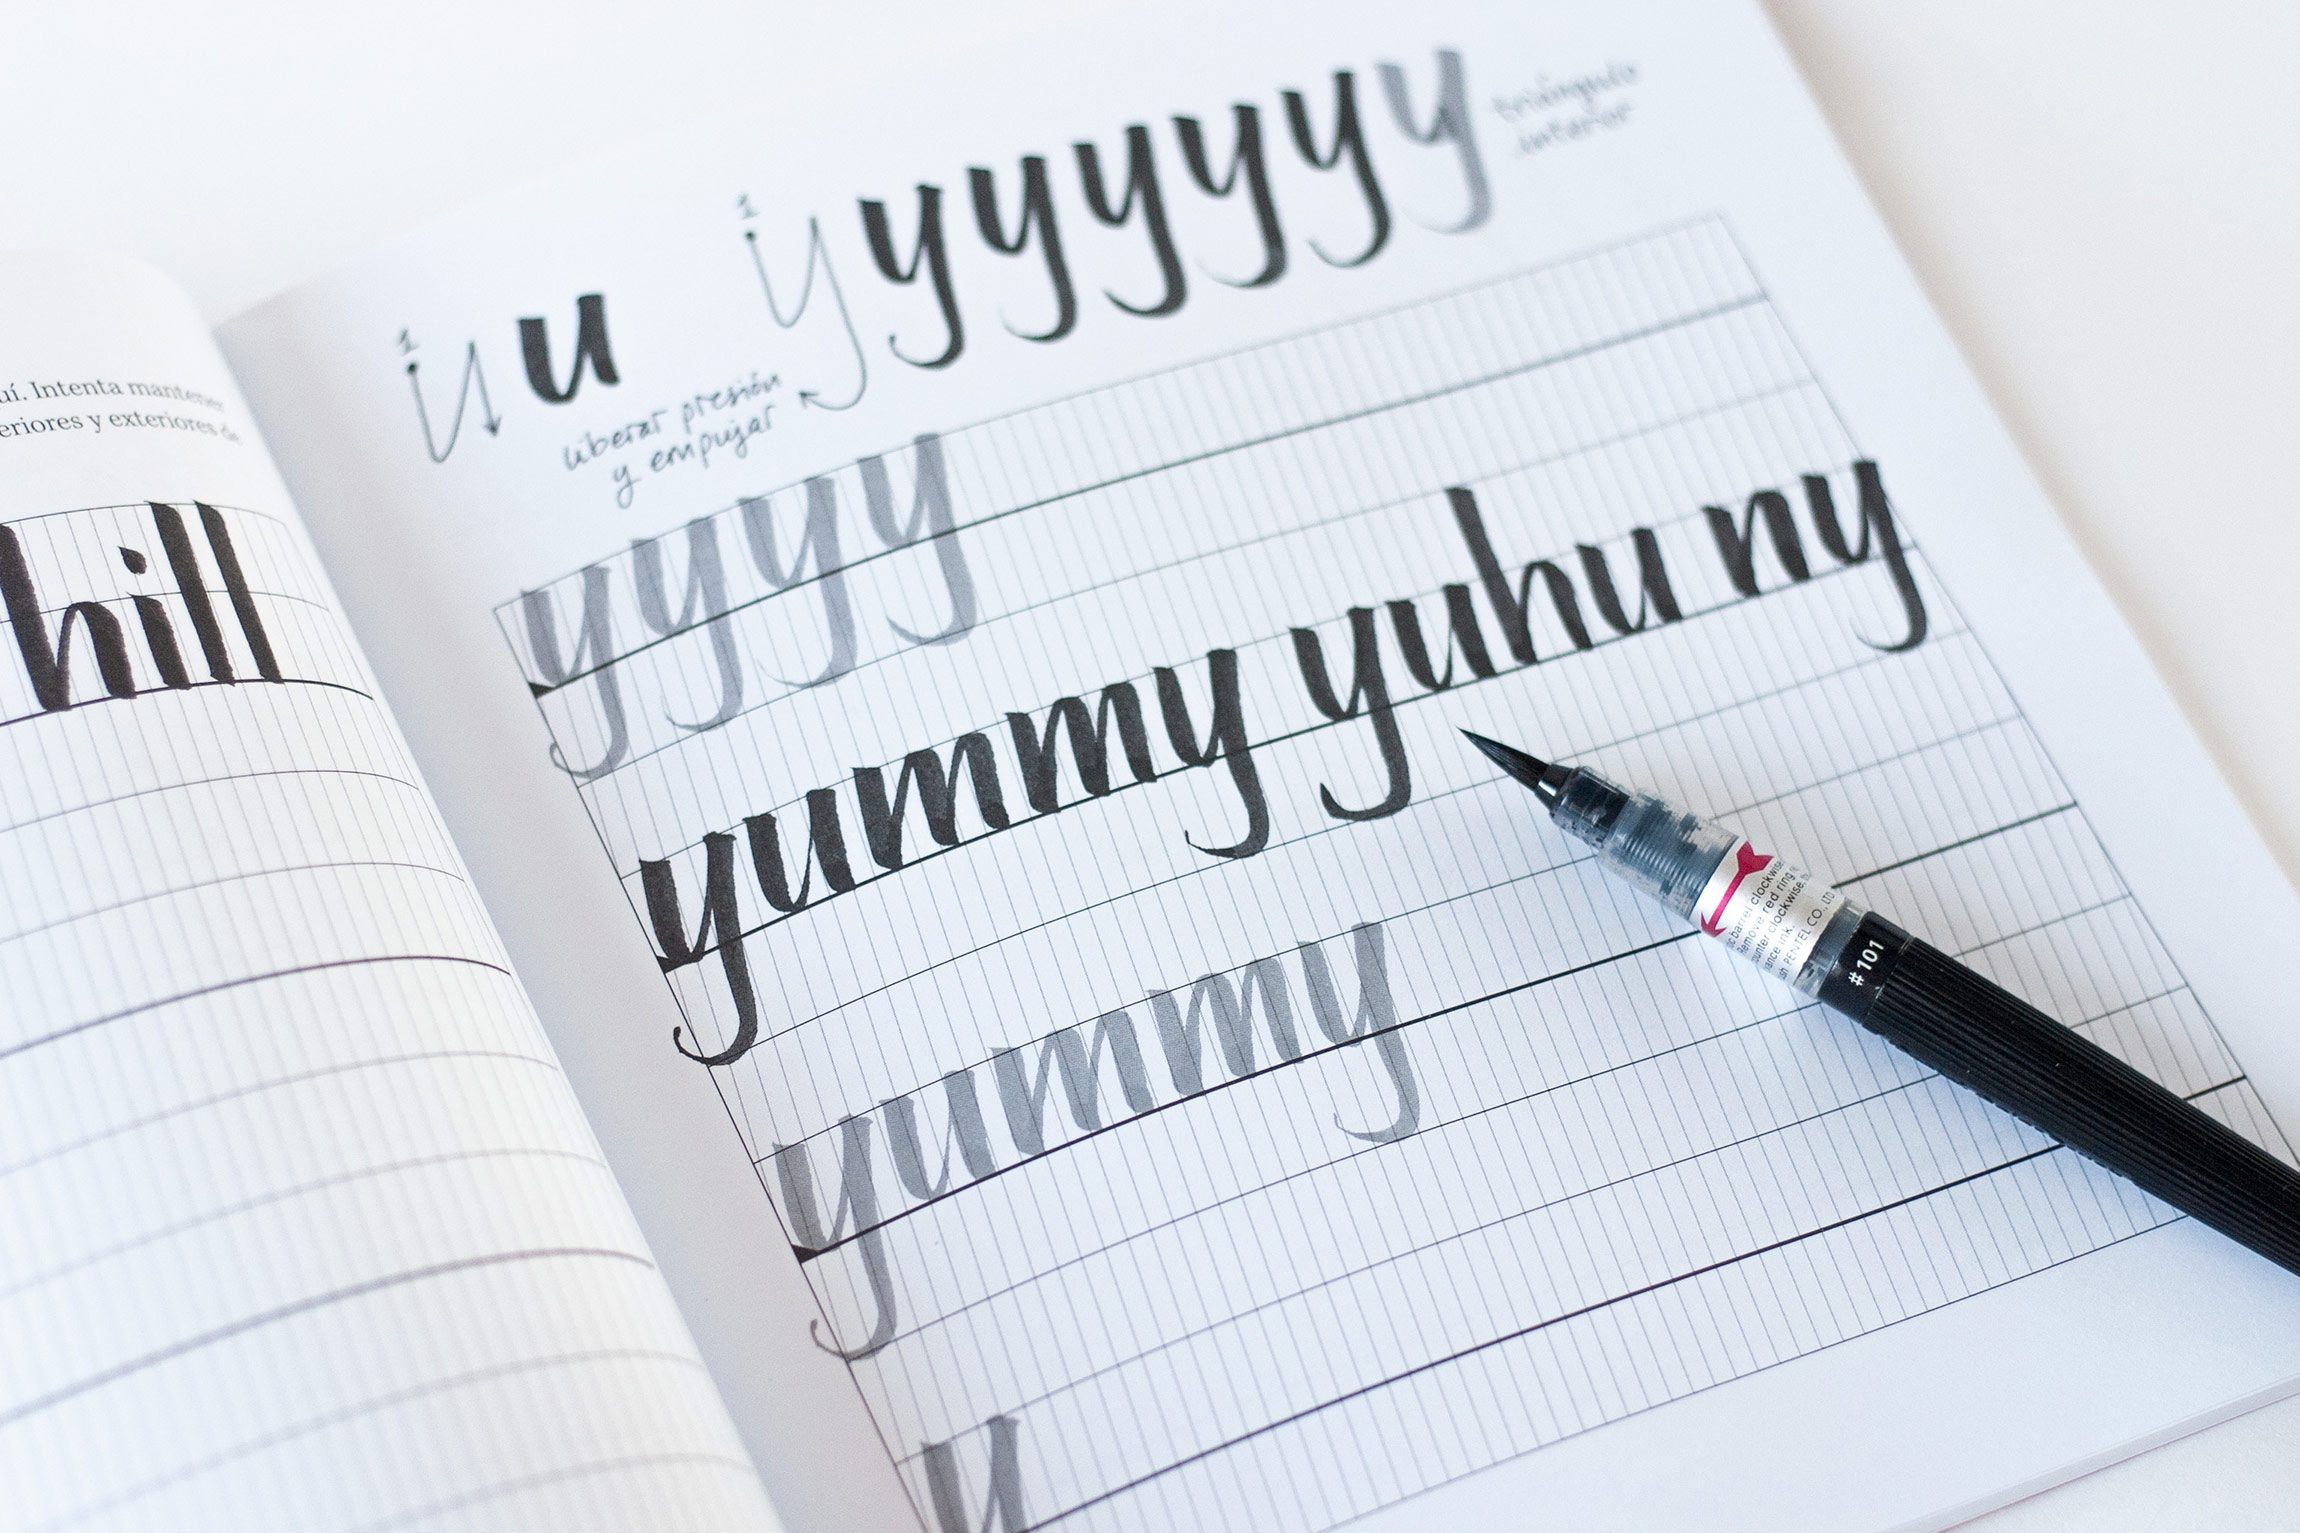 uí. Intenta mantener
eriores y exteriores de
hill
1
u
1
yyyyyy
triángulo
interior
liberar presión
y empujar
yyyy
yummy yuhu ny
yummy
y
barrel clockwise.
Remove red ring
counter clockwise.
ink.
PENTEL CO., LTD.
#101